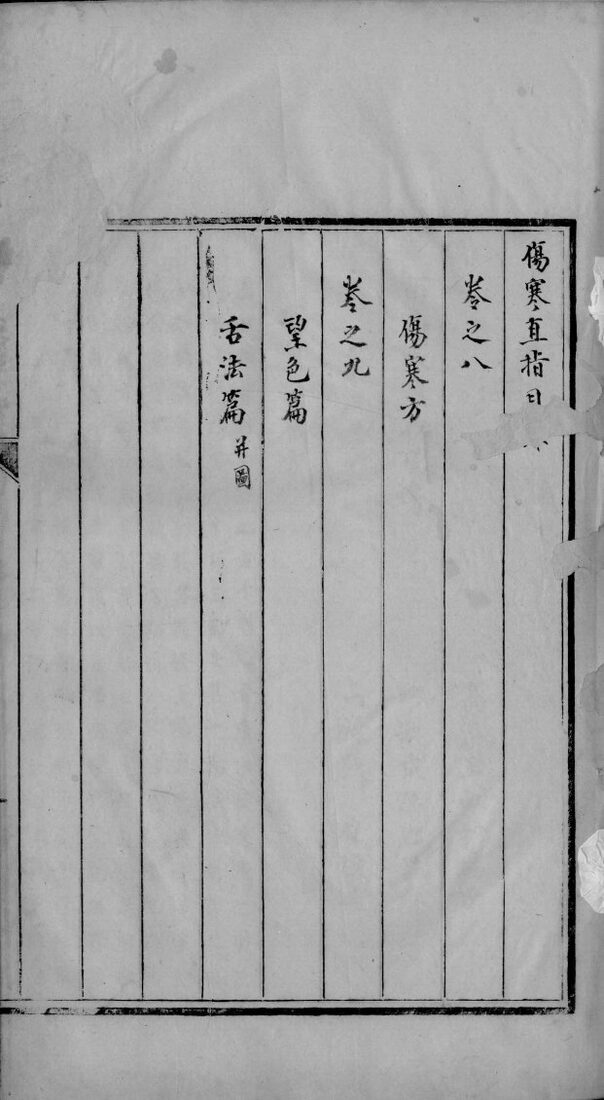 傷寒直指目
卷之八
傷寒方
卷之九
望色篇
舌法篇 并圖